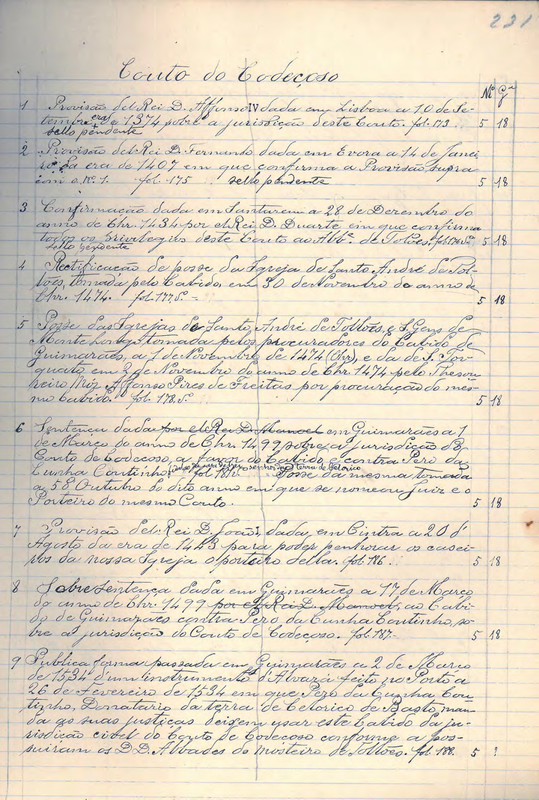 231
Couto do Codeçoso
Nº Gª
1 Provisão del Rei D. Affonso IV dada em Lisboa a 10 de Se-
tembro era 1374 sobre a jurisdição deste Couto. fol. 173 5 18
sello pendente
2 Provisão del Rei D. Fernando dada em Evora a 14 de Janei
ro da era de 1407 em que confirma a Provisão supra
com o nº 1. fol. 175 sello pendente 5 18
3 Confirmação dada em Santarem a 28 de Dezembro do
anno de Chr. 1434 por el Rei D. Duarte em que confirma
todos os privilegios deste Couto ao Abb. de Tolões. 5 18
sello pendente
4 Rectificação de posse da Igreja de Santo André de Tol-
lões, tomada pelo Cabido, em 30 de Novembro do anno de
Chr. 1474. fol. 177. vº 5 18
5 Posse das Igrejas de Santo André de Tollões, e S. Gens de
Monte Longo, tomada pelos procuradores do Cabido de
Guimarães, a 1 de Novembro de 1474 (Chr), e da de S. Tor-
quato em 2 de Novembro do anno de Chr. 1474 pelo Thesou-
reiro Mór Affonso Pires de Freitas por procuração do mes-
mo Cabido. fol. 178. vº 5 18
6 Sentença dada por el Rei D. Manoel em Guimarães a 1
de Março do anno de Chr. 1499 sobre a jurisdição do
Couto de Codeçoso, a favor do Cabido e contra Pero da
Cunha Coutinho, senhor da terra de Celorico. Posse da mesma tomada
a 5 8 Outubro do dito anno em que se nomeou Juiz e o
Porteiro do mesmo Couto. 5 18
7 Provisão del Rei D. João I, dada em Cintra a 20 d'
Agosto da era de 1443 para poder penhorar os casei-
ros da nossa Igreja o porteiro della. fol. 186. 5 18
8 Sobresentença dada em Guimarães a 17 de Março
do anno de Chr. 1499 por el Rei D. Manoel, ao Cabi-
do de Guimarães contra Pero da Cunha Coutinho, so-
bre a jurisdição do Couto de Codeçoso. fol. 187. 5 18
9 Publica forma passada em Guimarães a 2 de Março
de 1534 d'um instrumento d'Alvará feito no Porto a
26 de Fevereiro de 1534 em que Pero da Cunha Cou-
tinho, Donatario da terra de Celorico de Basto, man-
da as suas justiças deixem usar este Cabido da ju-
risdição civel do Couto de Codeçoso conforme a pos-
suiram os D.D. Abbades do mosteiro de Tollões. fol. 188. 5 ?